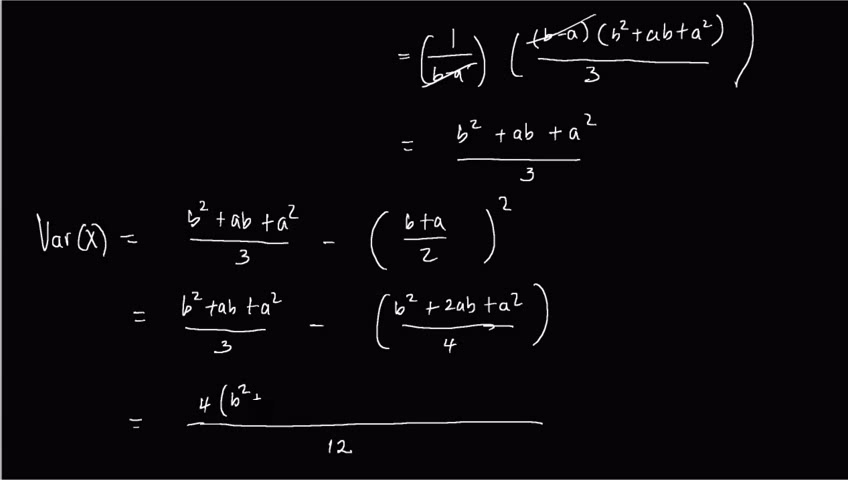 = (1/(b-a)) ((b-a)(b²+ab+a²)/3)
= (b² + ab + a²)/3
Var(X) = (b² + ab + a²)/3 - ((b+a)/2)²
= (b² + ab + a²)/3 - ((b² + 2ab + a²)/4)
= 4(b² +/12